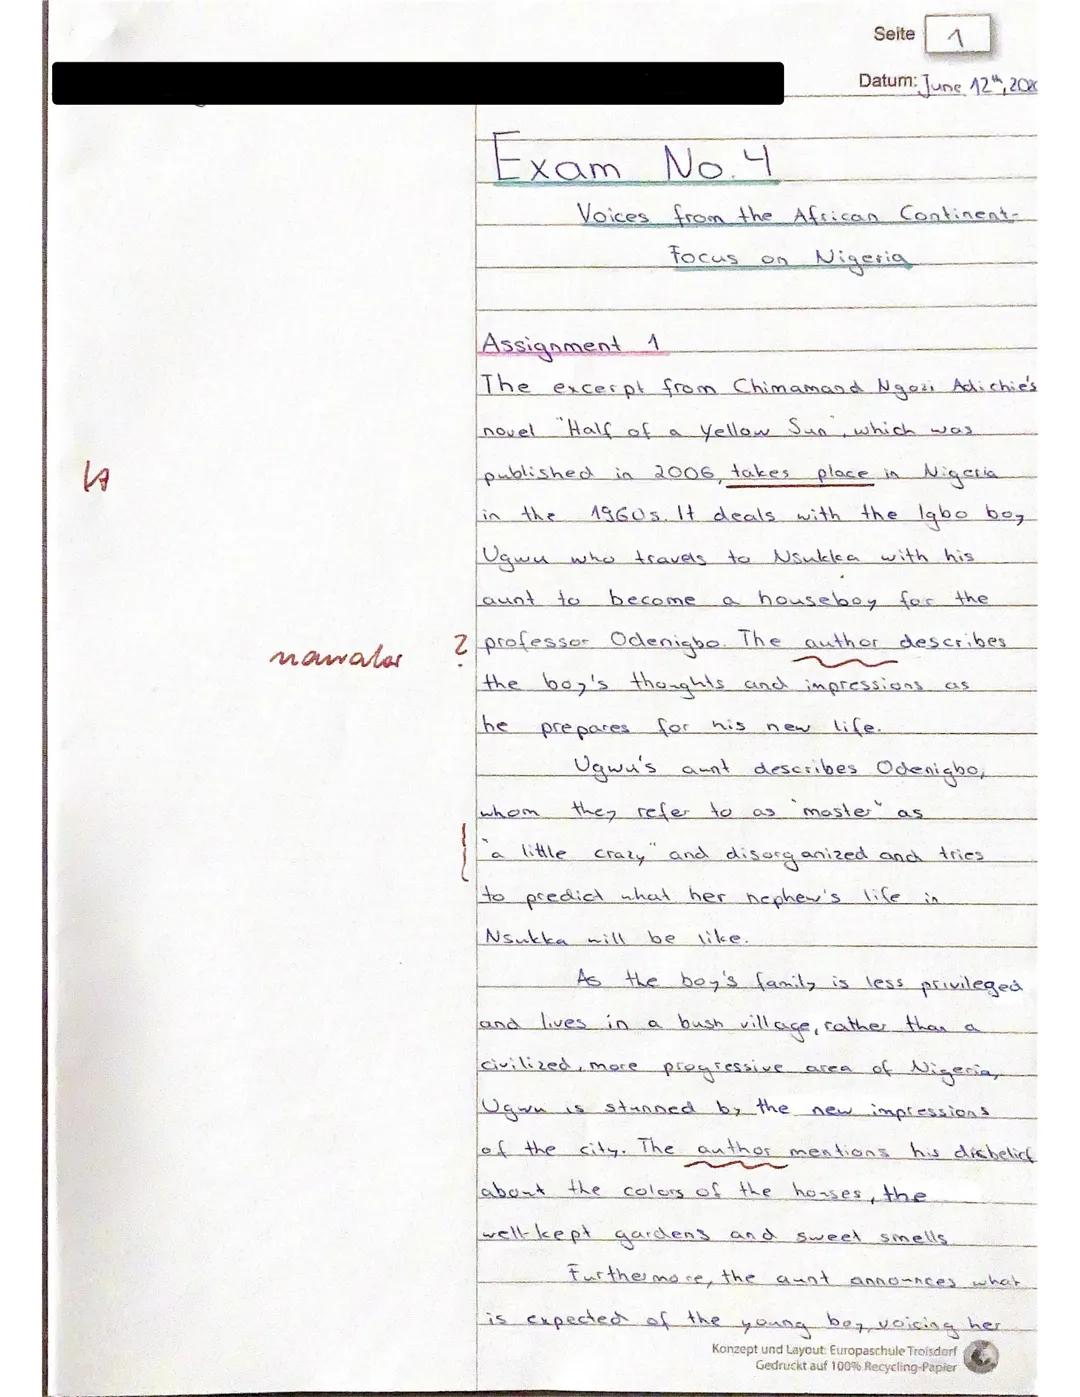 Seite 1
Datum: June 12th, 202
Exam No. 4
Voices from the African Continent-
Focus on Nigeria
Assignment 1
The excerpt from Chimamand Ngozi Adichie's
novel "Half of a Yellow Sun", which was
published in 2006, takes place in Nigeria
in the 1960s. It deals with the Igbo boy
Ugwu who travels to Nsukka with his
aunt to become a houseboy for the
narrator ? professor Odenigbo. The author describes
the boy's thoughts and impressions as
he prepares for his new life.
Ugwu's aunt describes Odenigbo,
whom they refer to as "master" as
"a little crazy" and disorganized and tries
to predict what her nephew's life in
Nsukka will be like.
As the boy's family is less privileged
and lives in a bush village, rather than a
civilized, more progressive area of Nigeria,
Ugwu is stunned by the new impressions
of the city. The author mentions his disbelief
about the colors of the houses, the
well-kept gardens and sweet smells
Furthermore, the aunt announces what
is expected of the young boy, voicing her
Konzept und Layout: Europaschule Troisdorf
Gedruckt auf 100% Recycling-Papier